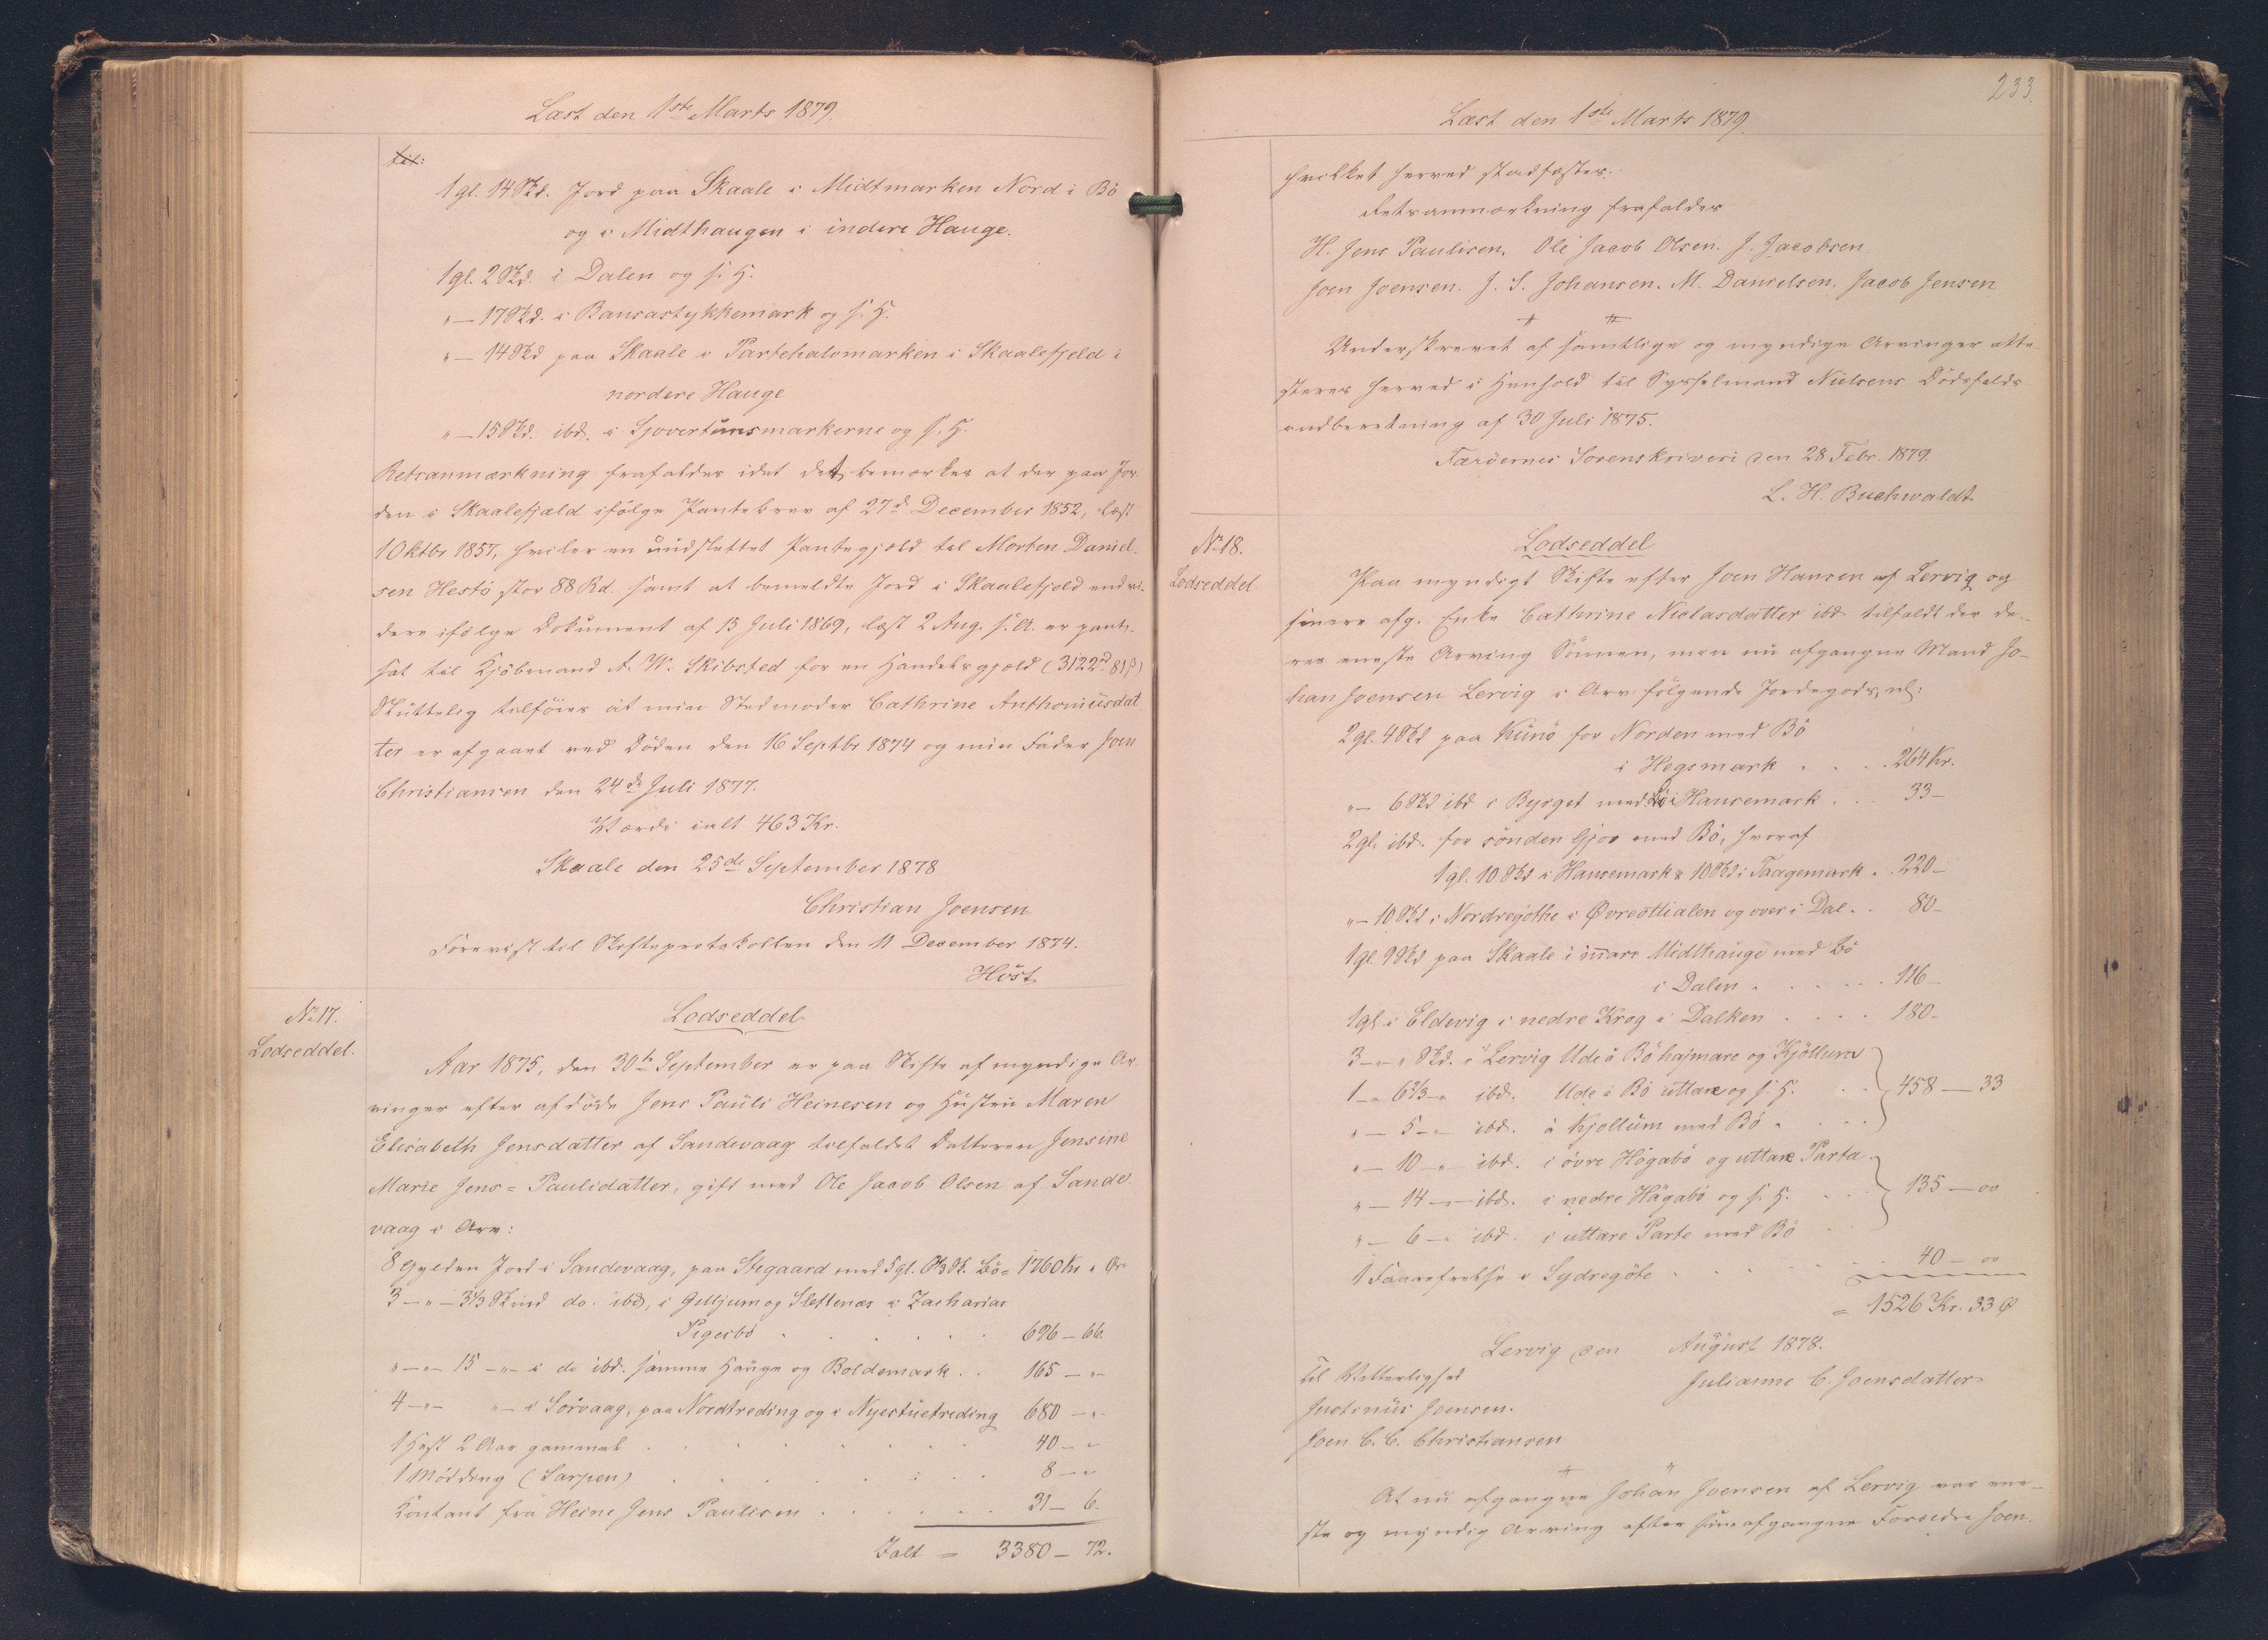 Læst den 1ste Marts 1879.
til:
1 gl. 14 Skd. Jord paa Skaale i Midtmarken Nord i Bö
og i Midthaugen i indere Hauge.
1 gl. 2 Skd. i Dalen og s. H.
" — 17 Skd. i Bansastykkemark og s. H.
" — 14 Skd paa Skaale i Partehalvmarken i Skaalefjeld i
nordere Hauge
" — 15 Skd. ibd. i Sjovertunsmarkerne og s. H.
Retsanmærkning frafaldes idet det bemærkes at der paa Jor-
den i Skaalefjæld ifølge Pantebrev af 27d December 1852, læst
1 Oktbr 1857, hviler en uudslettet Pantegjæld til Morten Daniel-
sen Hestö stor 88 Rd. samt at bemeldte Jord i Skaalefjeld endvi-
dere ifølge Dokument af 13 Juli 1869, læst 2 Aug. s. A. er pant-
sat til Kjöbmand A. W. Skibsted for en Handelsgjæld (3122rd 81 β)
Sluttelig tilföies at min Stedmoder Cathrine Anthoniusdat
ter er afgaaet ved Döden den 16 Septbr 1874 og min Fader Joen
Christiansen den 24de Juli 1877.
Værdi ialt 463 Kr.
Skaale den 25de September 1878
Christian Joensen
Forevist til Skifteprotokollen den 11 December 1874.
Höst
No 17.
Lodseddel.
Lodseddel.
Aar 1875, den 30te September er paa Skifte af myndige Ar
vinger efter afdöde Jens Pauli Heinesen og Hustru Maren
Elisabeth Jensdatter af Sandevaag tilfaldet Datteren Jensine
Marie Jens = Paulidatter, gift med Ole Jacob Olsen af Sande-
vaag i Arv:
8 Gylden Jord i Sandevaag, paa Stegaard med 5 gl. 6⅔ Sk. Bö = 1760 Kr " Ör
3 — " — 3⅓ Skind do. ibd, i Gelljum og Slettenæs i Zacharias
Pigesbö . . . . . . 696 — 66.
" — " — 15 — " — i do ibd. samme Hauge og Boldemark . . 165 — "
4 — " — " — i Sörvaag, paa Nordtreding og i Nyestuetreding 680 — "
1 Hest 2 Aar gammel . . . . . . . . 40 — "
1 Mödding (Sarpen) . . . . . . . . 8 — "
Kontant fra Heine Jens Paulisen . . . . . . 31 — 6.
Ialt = 3380 — 72.
233.
Læst den 1ste Marts 1879.
hvilket herved stadfæstes.
Retsanmærkning frafaldes
H. Jens Paulisen. Ole Jacob Olsen. J. Jacobsen.
Joen Joensen. J. S. Johansen. M. Danielsen. Jacob Jensen
Underskrevet af samtlige og myndige Arvinger atte-
steres herved i Henhold til Sysselmand Nielsens Dödsfalds-
indberetning af 30 Juli 1875.
Færöernes Sorenskriveri den 28 Febr. 1879.
L. H. Buchwaldt
No 18.
Lodseddel
Lodseddel
Paa myndigt Skifte efter Joen Hansen af Lervig og
senere afg. Enke Cathrine Niclasdatter ibd tilfaldt der de-
res eneste Arving Sönnen, men nu afgangne Mand Jo-
han Joensen Lervig i Arv fölgende Jordegods, nl:
2 gl. 4 Skd paa Kunö for Norden med Bö
i Hegsmark . . . . 264 Kr.
" — 6 Skd ibd i Byrget med Bö i Hansemark . . . 33 —
2 gl. ibd. for sönden Gjov med Bö, hvoraf
1 gl. 10 Skd i Hansemark & 10 Skd i Taagemark . . 220 —
" — 10 Skd i Nordregöthe i Øvreottialen og over i Dal . . 80 —
1 gl. 9 Skd paa Skaale i innare Midlhauge med Bö
i Dalen . . . . . . 116 —
1 gl. i Eldevig i nedre Krog i Dalken . . . . 180 —
3 — " — " Skd. i Lervig Ude á Bö hajmare og Kjöllum
1 — " 6⅔ — " ibd. Ude á Bö uttare og s. H. . . 458 — 33
" — 5 — " — ibd. á Kjollum med Bö . . . .
" — 10 — " — ibd. i övre Högabö og uttare Parta .
" — 14 — " — ibd. i nedre Högabö og s. H. . . . 135 — oo
" — 6 — " ibd. i uttare Parte med Bö . .
1 Faarefrelse i Sydregöte . . . . . . . 40 — oo
= 1526 Kr. 33 Ø
Lervig den August 1878.
Til Vitterlighed
Julianne C. Joensdatter
Justinus Joensen.
Joen C. C. Christiansen
At nu afgangne Johan Joensen af Lervig var ene-
ste og myndig Arving efter sine afgangne Forældre Joen